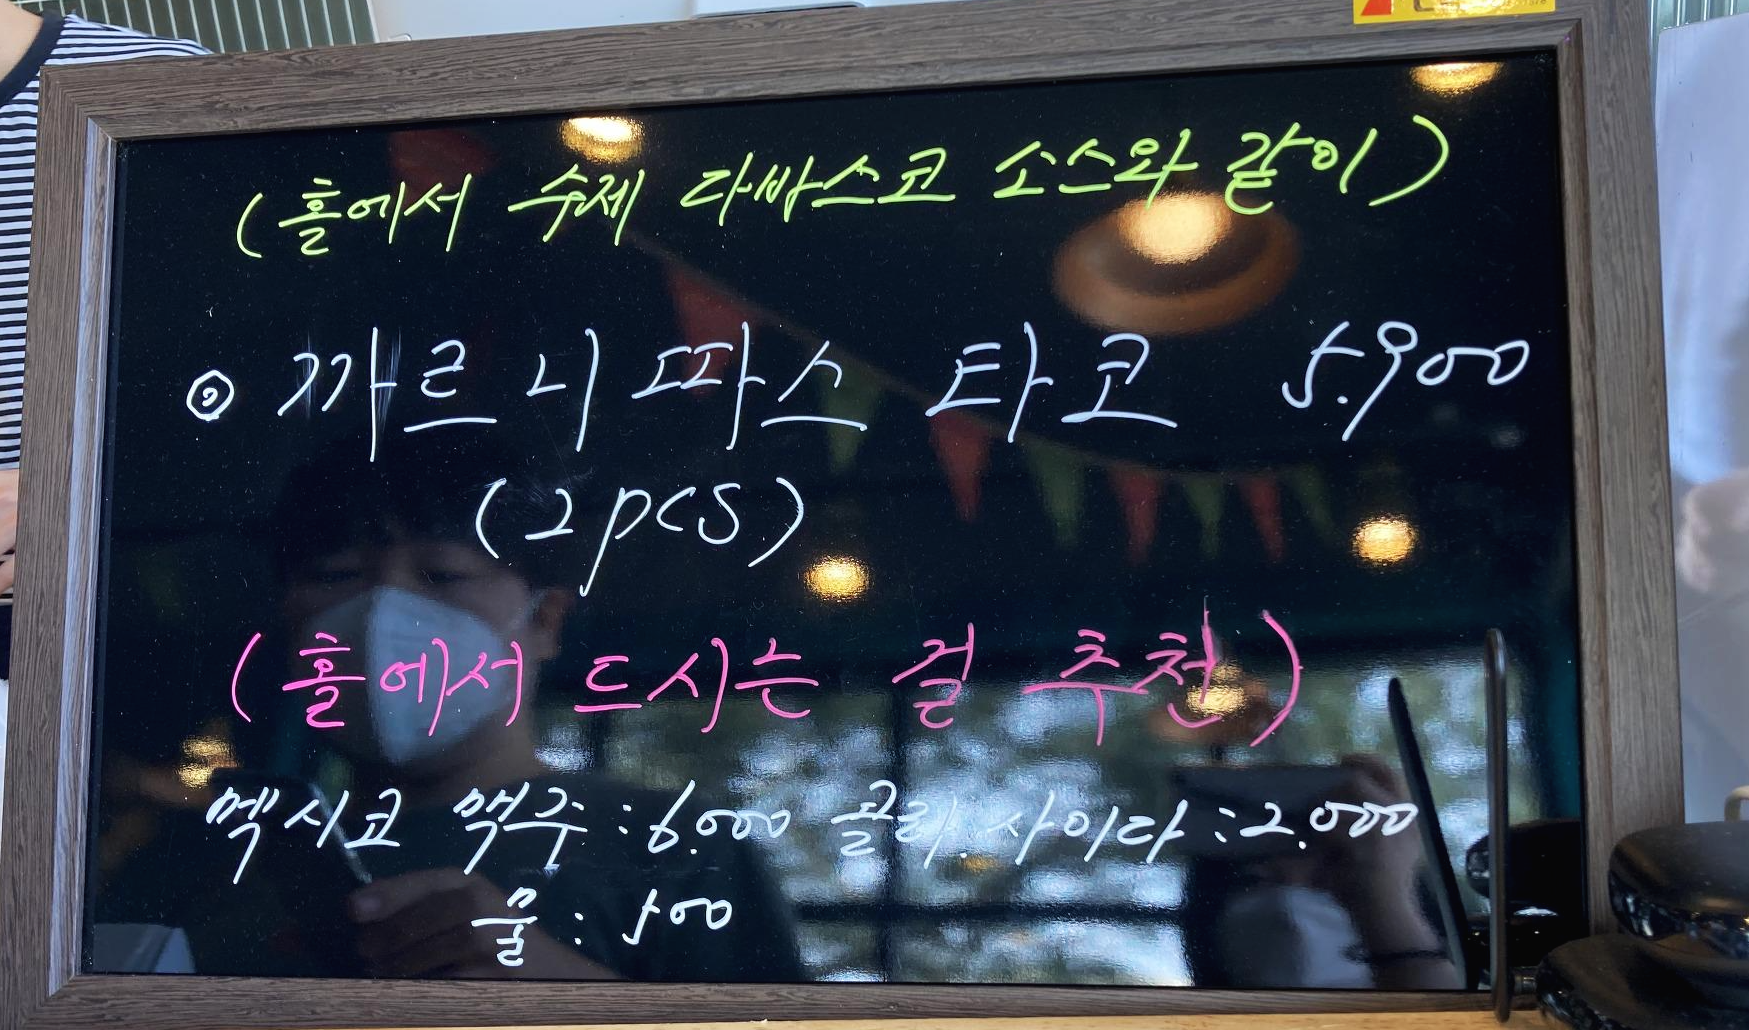 (홀에서 수제 다바스코 소스와 같이)
◎ 까르니따스 타코 5.900
(2pcs)
(홀에서 드시는 걸 추천)
멕시코 맥주 : 6.000 콜라. 사이다 : 2.000
물 : 500